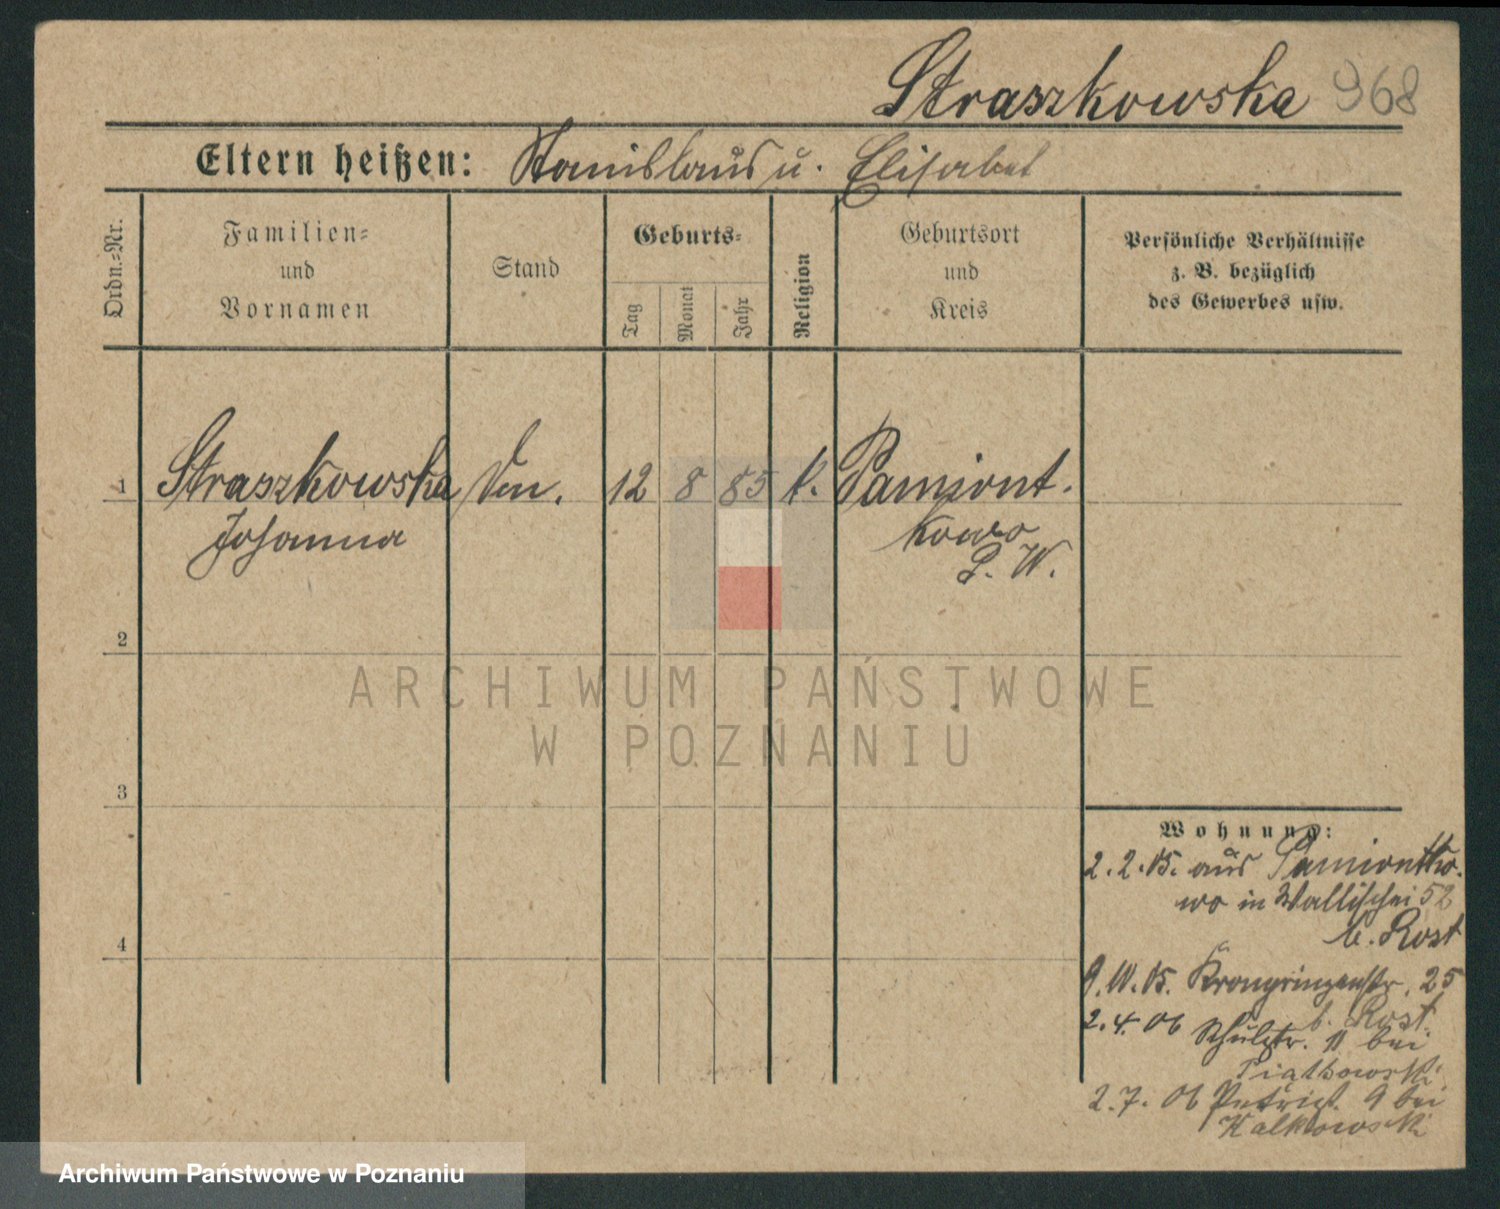 Straszkowska 968
Eltern heißen: Stanislaus u. Elisabet
Ordn.-Nr.
Familien-
und
Vornamen
Stand
Geburts-
Tag
Monat
Jahr
Religion
Geburtsort
und
Kreis
Persönliche Verhältnisse
z. B. bezüglich
des Gewerbes usw.
1 Straszkowska 12 8 85 k. Pamiont.
Johanna kowo
P. W.
2
3
4
Wohnung:
2.2.05. aus Pamiontko-
wo in Wallischei 52
b. Rost
Kronprinzenstr. 25
b. Rost.
2.4.06 Schulstr. 11 bei
Piatkowski
2.7.06 9 bei
Kalkowski
ARCHIWUM PAŃSTWOWE
W POZNANIU
Archiwum Państwowe w Poznaniu